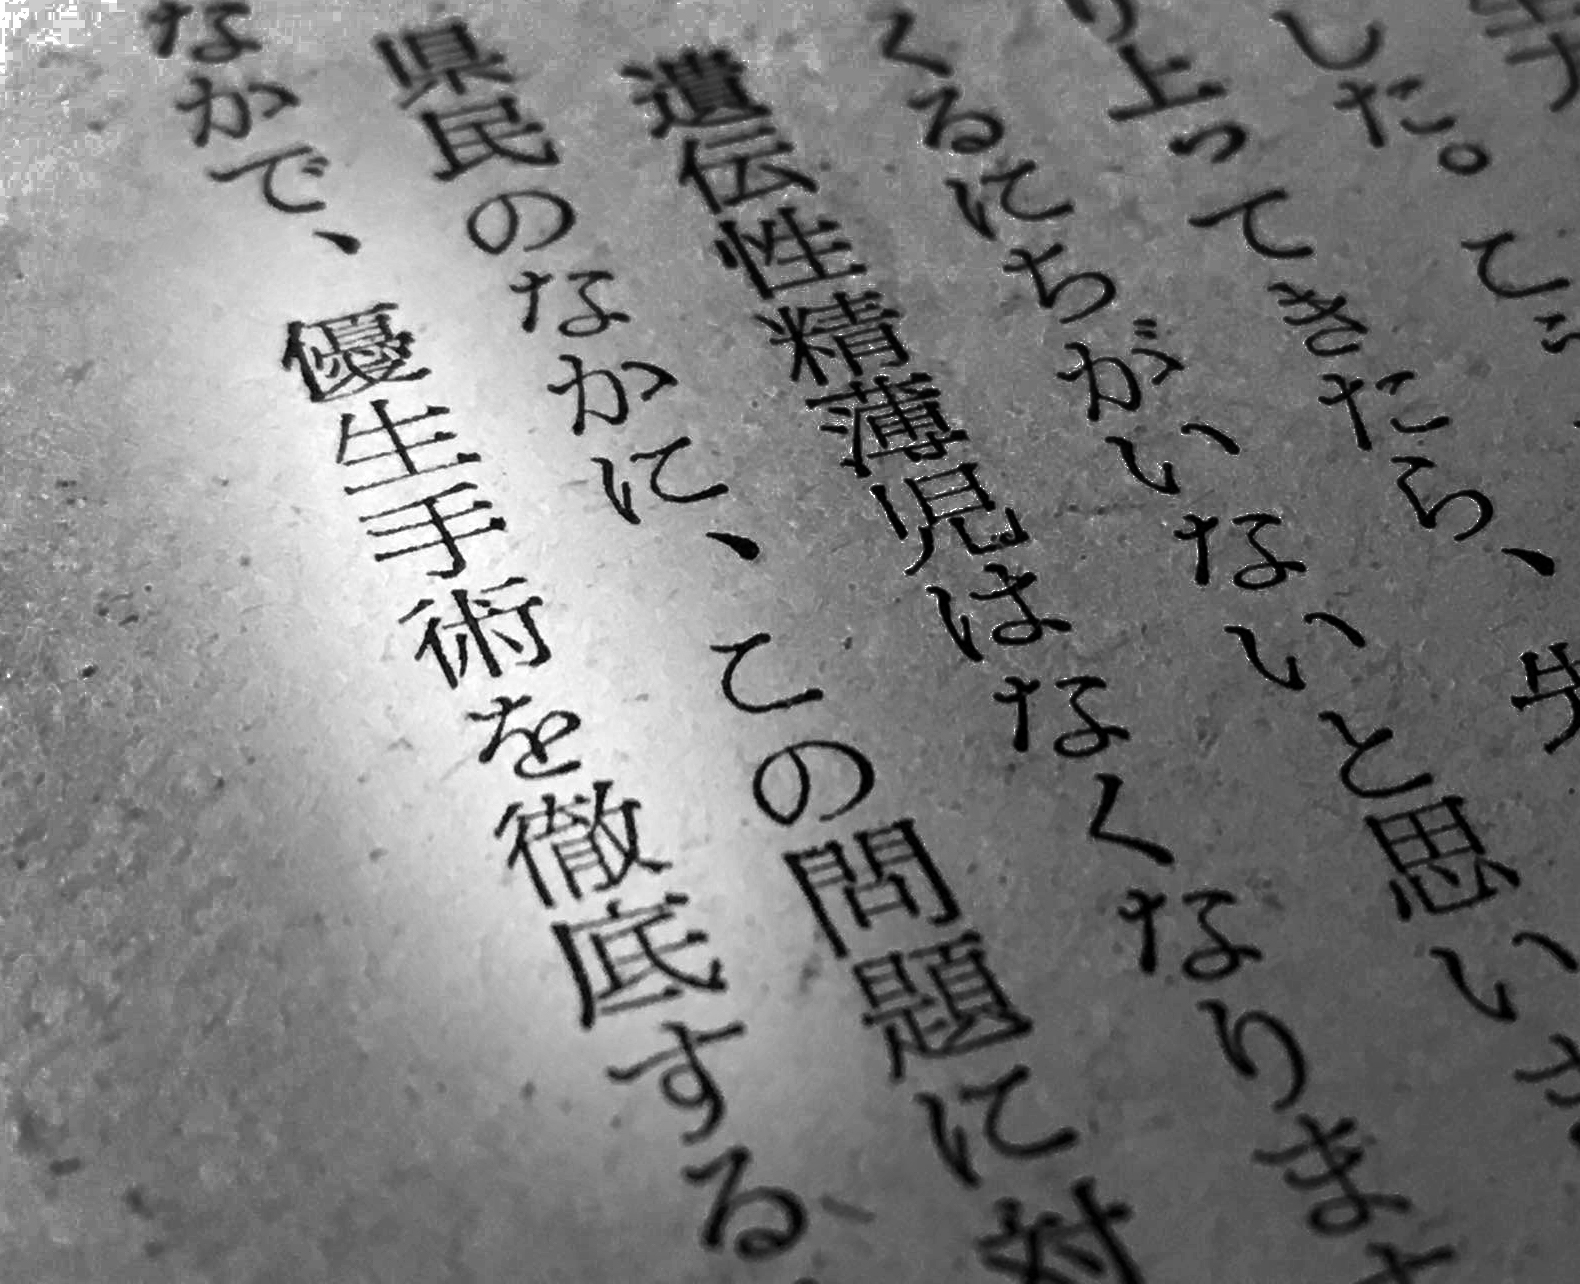 した。
り上ってきたら、
くるにちがいないと思い
遺伝性精薄児はなくなりま
県民のなかに、この問題に対
なかで、優生手術を徹底する